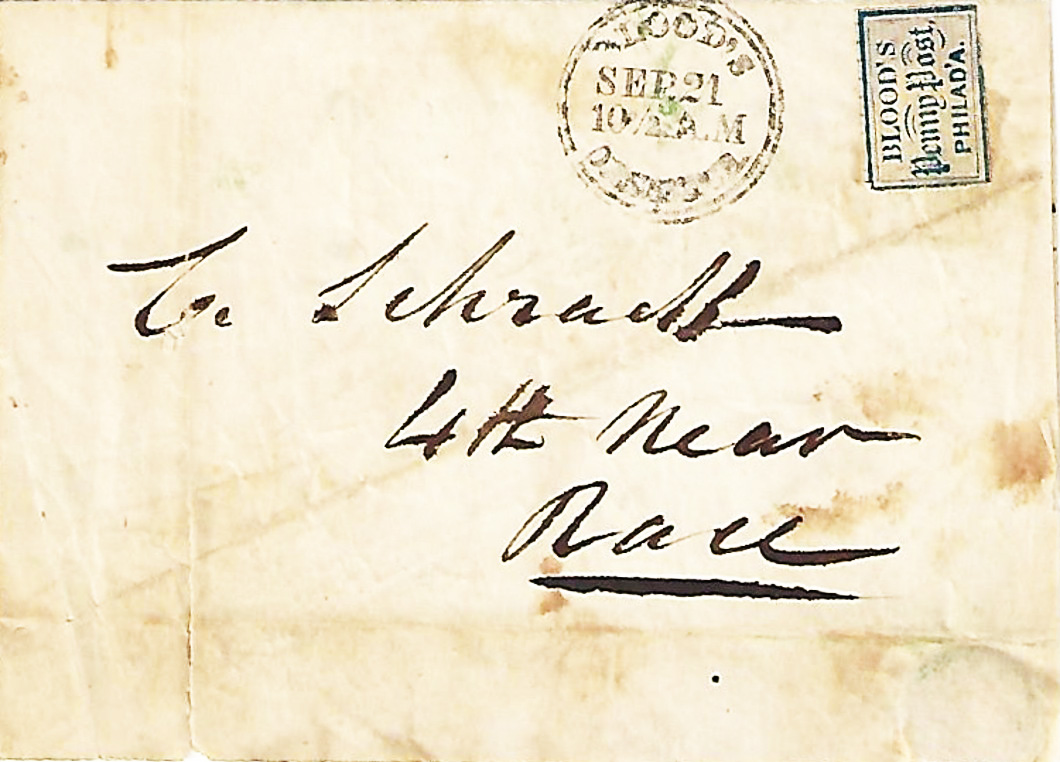 BLOOD'S
SEP.21
10½ A.M
DESPATCH
BLOOD'S
Penny Post,
PHILAD'A.
C. Schradt
4th Near
Race